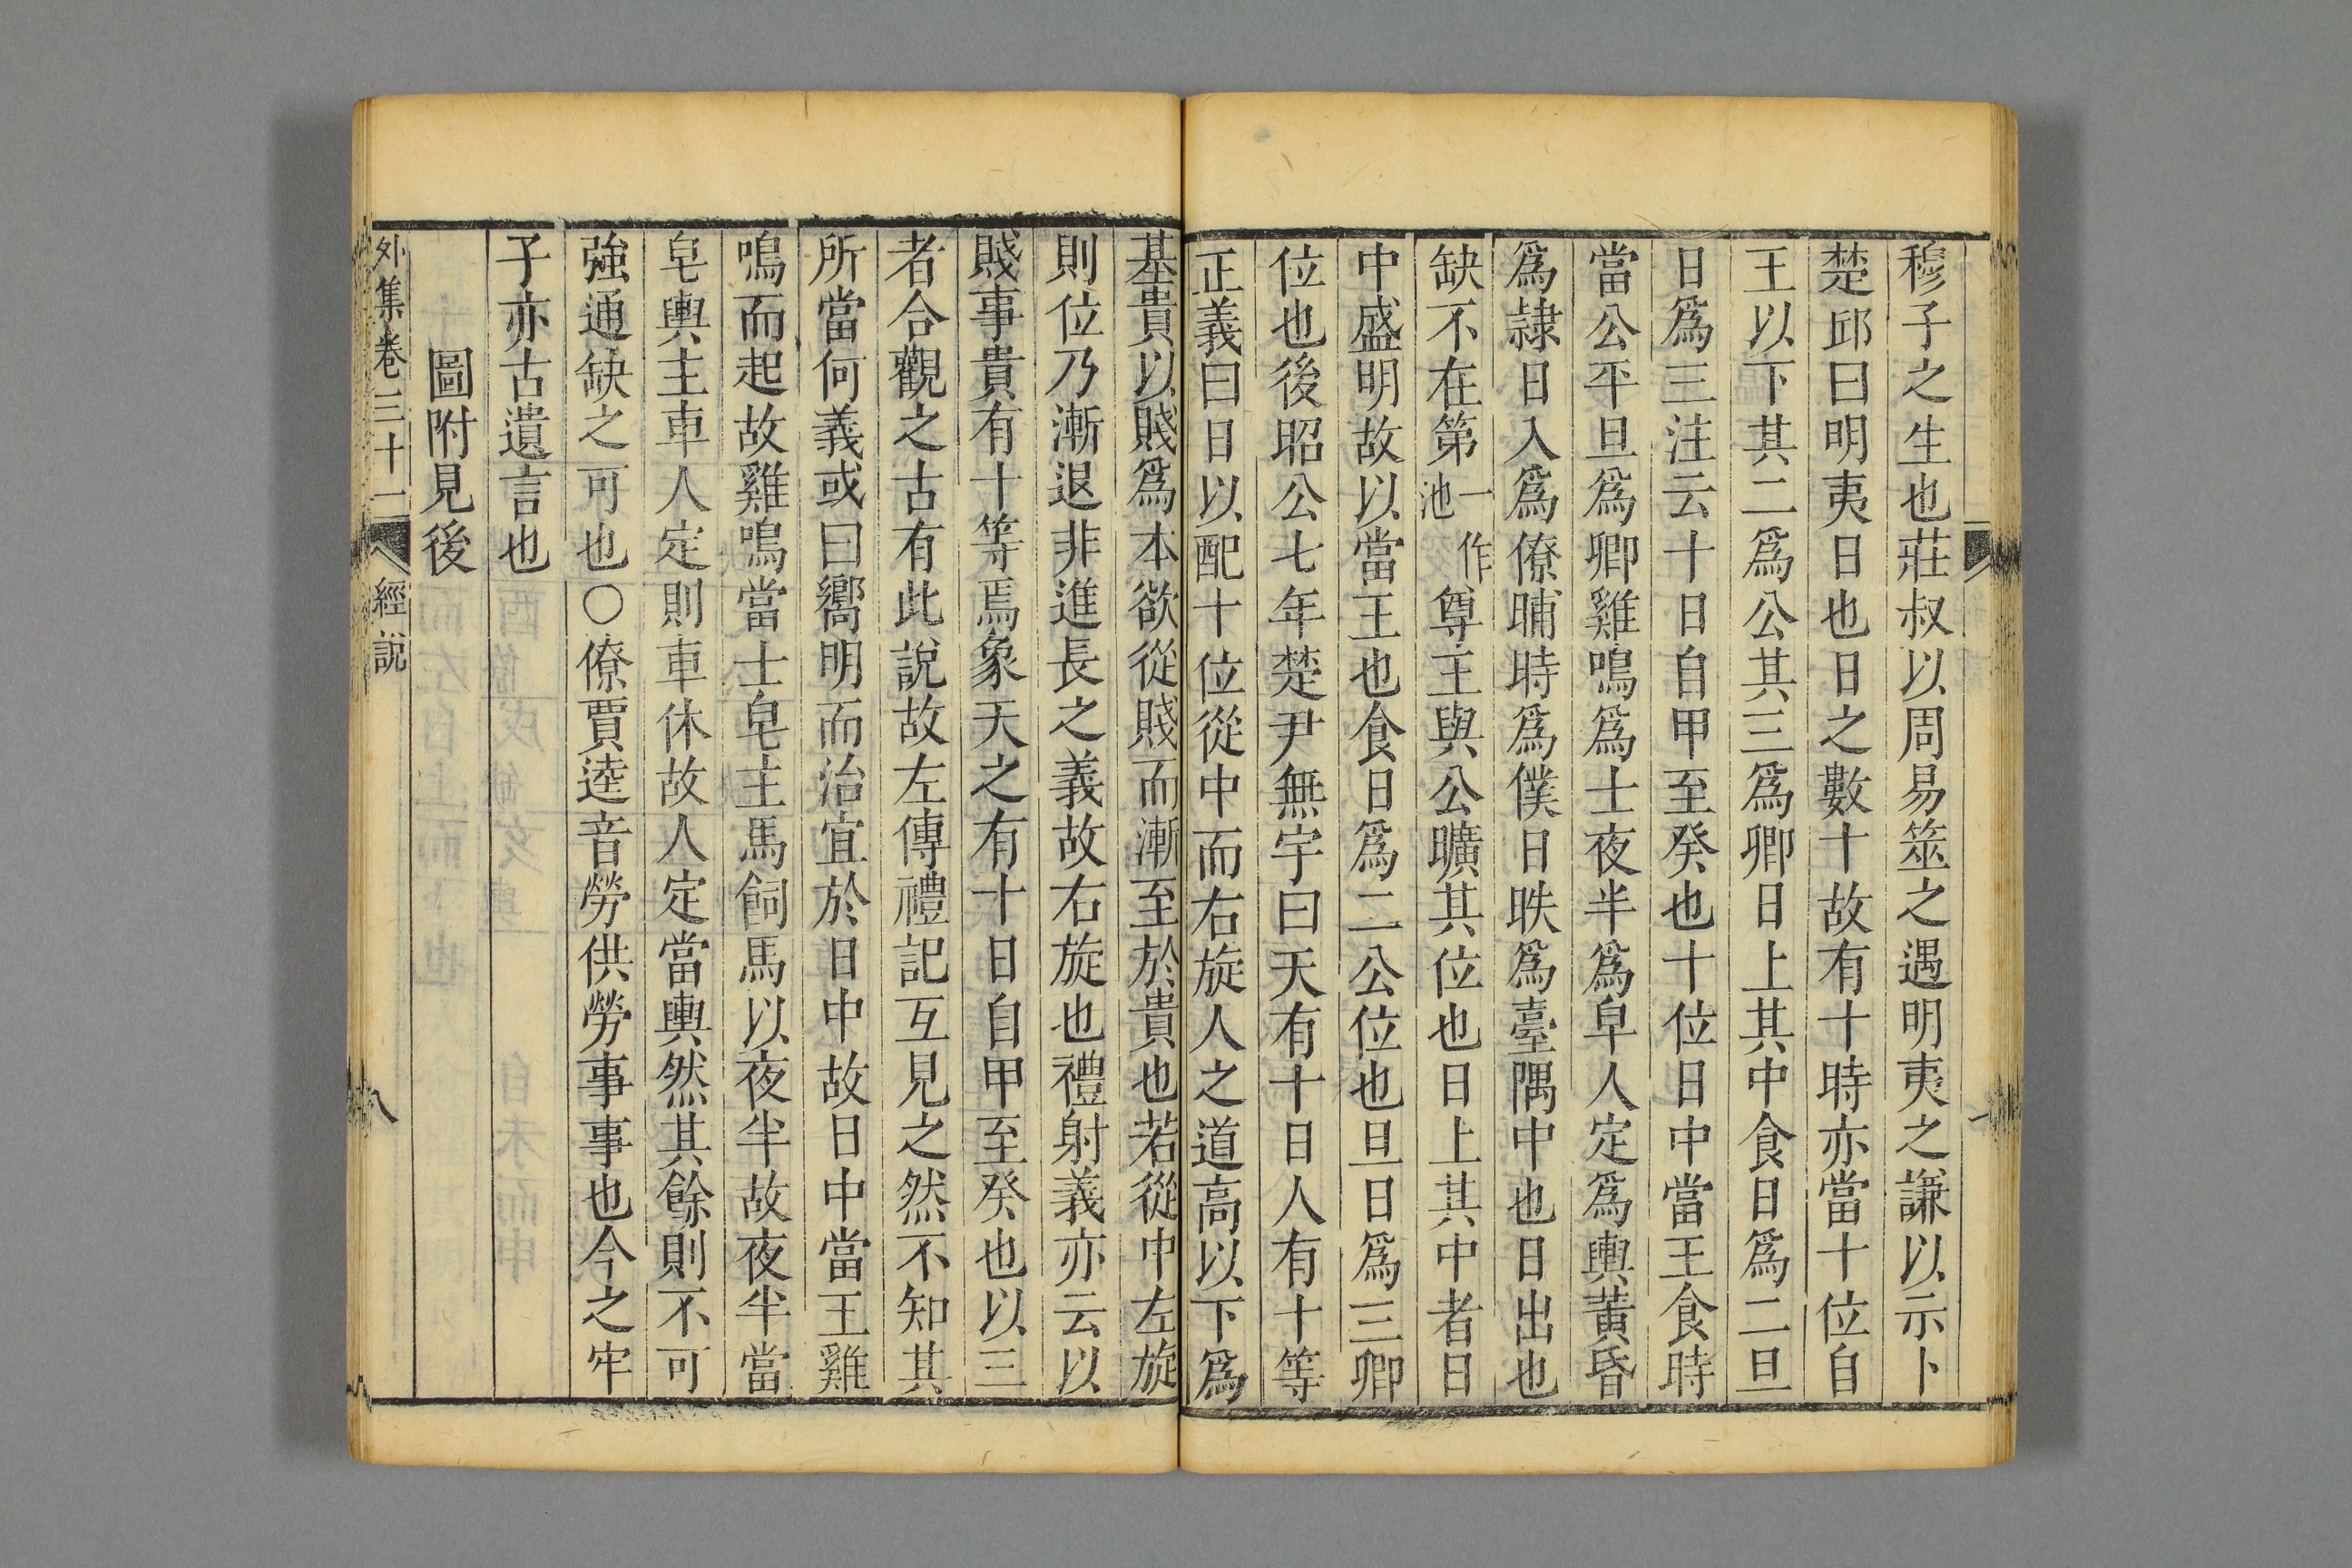 穆子之生也莊叔以周易筮之遇明夷之謙以示卜
楚邱曰明夷日也日之數十故有十時亦當十位自
王以下其二爲公其三爲卿日上其中食日爲二旦
日爲三注云十日自甲至癸也十位日中當王食時
當公平旦爲卿雞鳴爲士夜半爲皁人定爲輿黃昏
爲隷日入爲僚晡時爲僕日昳爲臺隅中也日出也
缺不在第一作池尊王與公曠其位也日上其中者日
中盛明故以當王也食日爲二公位也旦日爲三卿
位也後昭公七年楚尹無宇曰天有十日人有十等
正義曰日以配十位從中而右旋人之道高以下爲
基貴以賤爲本欲從賤而漸至於貴也若從中左旋
則位乃漸退非進長之義故右旋也禮射義亦云以
賤事貴有十等焉象天之有十日自甲至癸也以三
者合觀之古有此說故左傳禮記互見之然不知其
所當何義或曰嚮明而治宜於日中故日中當王雞
鳴而起故雞鳴當士皂主馬飼馬以夜半故夜半當
皂輿主車人定則車休故人定當輿然其餘則不可
強通缺之可也○僚賈逵音勞供勞事事也今之牢
子亦古遺言也
圖附見後
外集卷三十二 經說 八